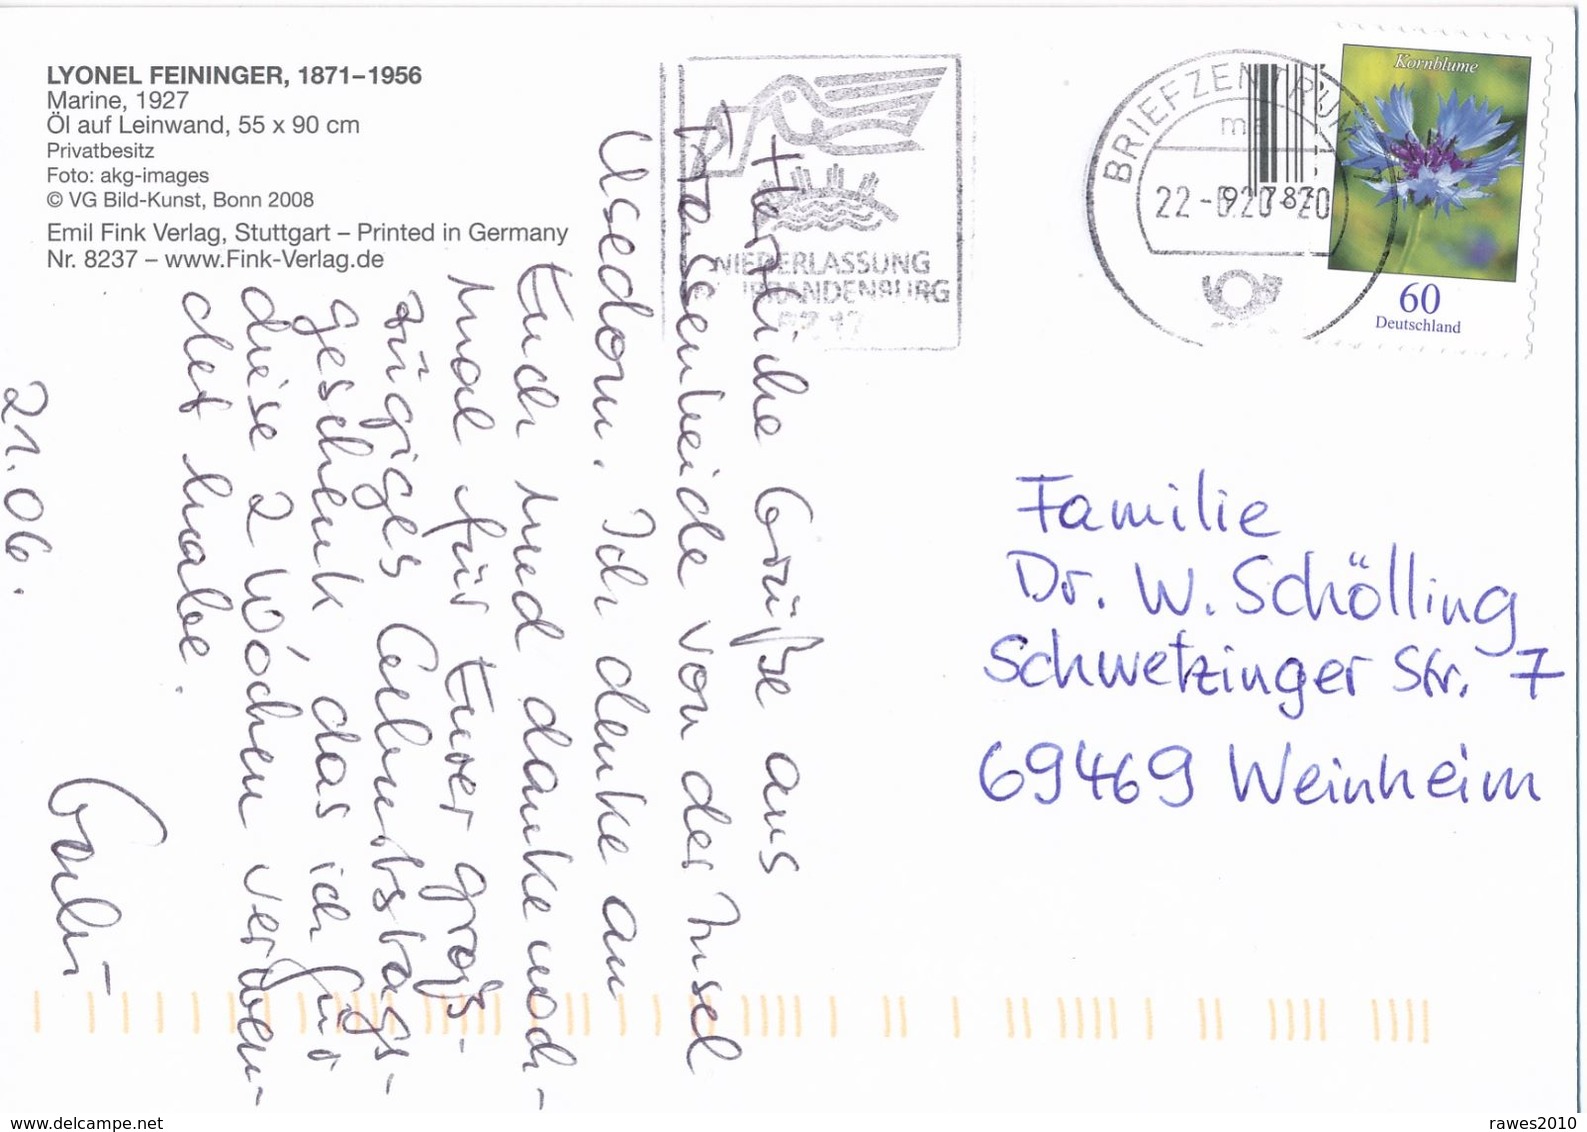 LYONEL FEININGER, 1871–1956
Marine, 1927
Öl auf Leinwand, 55 x 90 cm
Privatbesitz
Foto: akg-images
© VG Bild-Kunst, Bonn 2008
Emil Fink Verlag, Stuttgart – Printed in Germany
Nr. 8237 – www.Fink-Verlag.de
NIEDERLASSUNG
BRANDENBURG
BRIEFZENTRUM
Kornblume
60
Deutschland
Herzliche Grüße aus
von der Insel
Usedom. Ich denke an
Euch und danke noch-
mal für Euer groß-
zügiges Geburtstags-
geschenk, das ich für
diese 2 Wochen verwen-
det habe.
21.06.
Familie
Dr. W. Schölling
Schwetzinger Str. 7
69469 Weinheim
www.delcampe.net
rawes2010